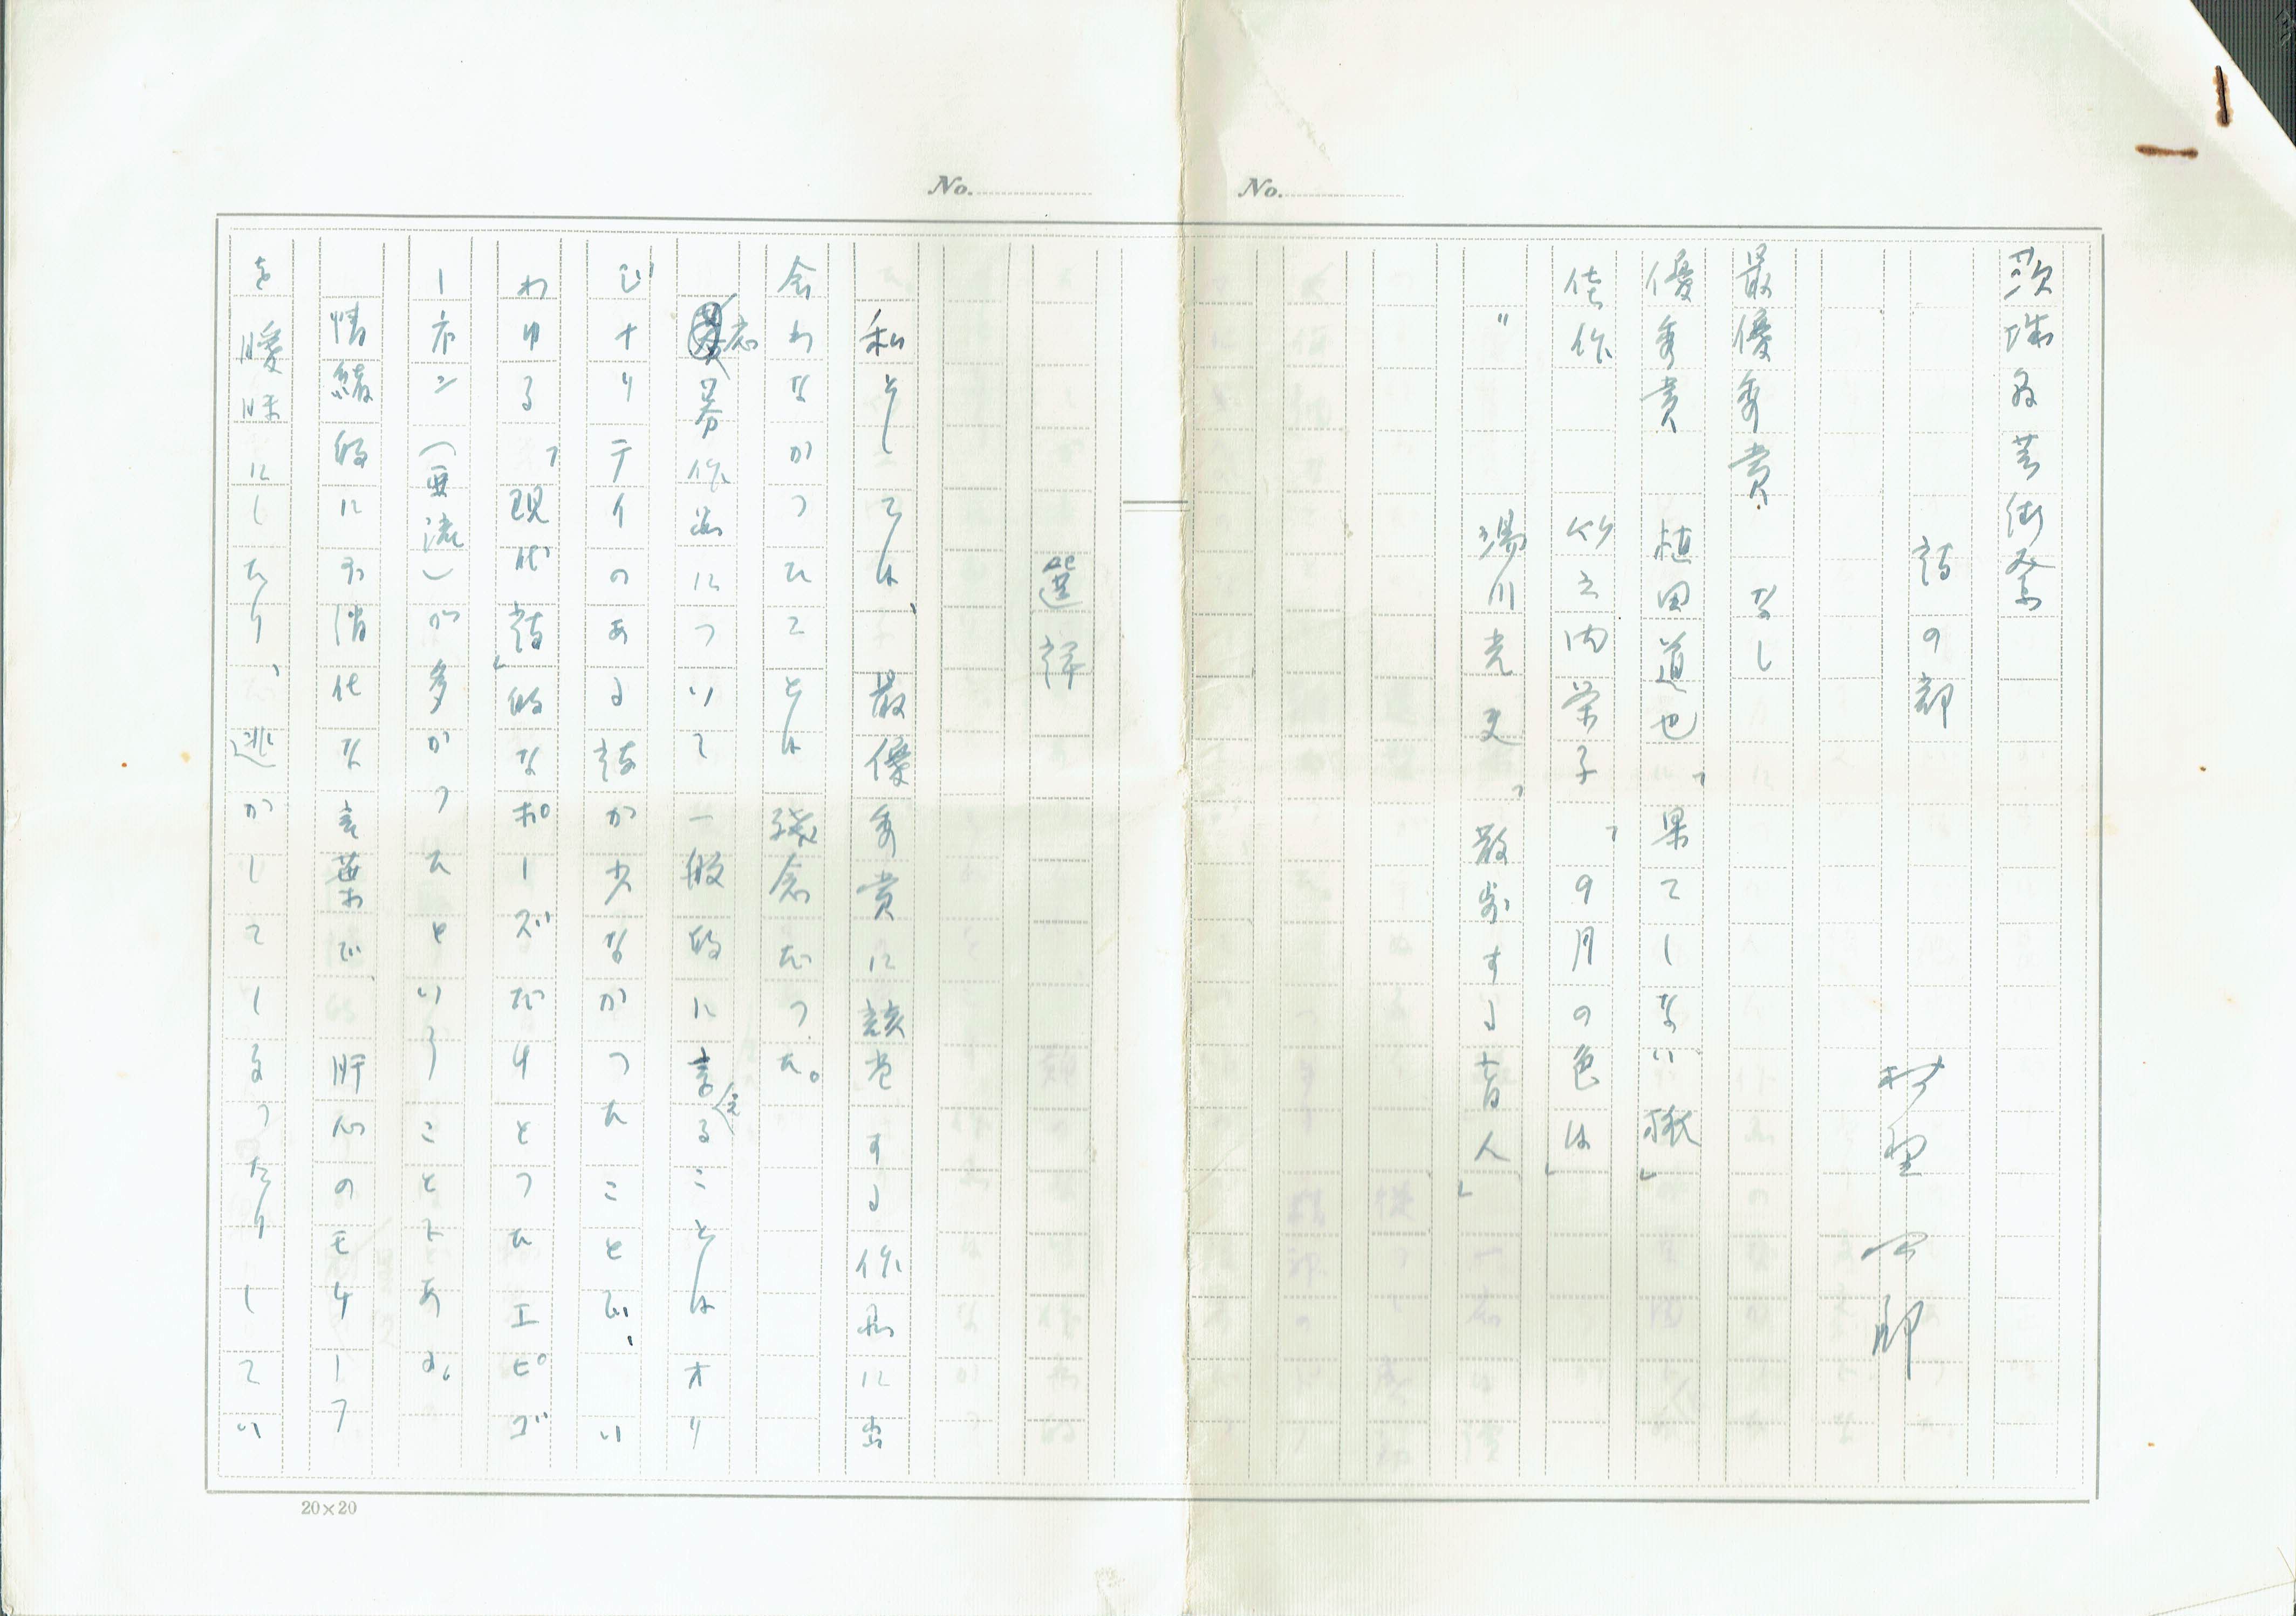 No.
No.
茨城県芸術祭
詩の部
村野四郎
最優秀賞 なし
優秀賞 植田道也「果てしない旅」
佳作 竹之内栄子「9月の色は」
〃 湯川光史「散歩する青人」
選評
私としては、最優秀賞に該当する作品に出
会わなかったことは残念だった。
応募作品について一般的に言えることはオリ
ジナリティのある詩が少なかったことで、い
わゆる「現代詩」的なポーズだけとったエピゴ
ーネン(亜流)が多かったということである。
情緒的に未消化な言葉で、肝心のモチーフ
を曖昧にしたり、逃がしてしまったりしてい
20×20